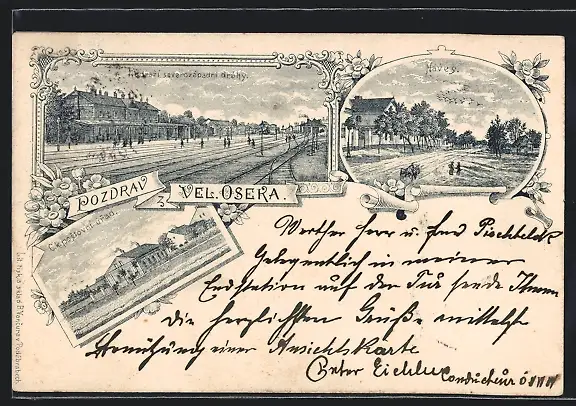 Nádraží severozápadní dráhy.
Náves.
POZDRAV
z
VEL. OSEKA.
C.k. poštovní úřad.
Werther Herr u. Frau
Gelegentlich in meiner
Endstation auf der Tur sende Ihnen
die herzlichsten Grüße mittelst
Benützung einer Ansichtskarte
Eichler
Conducteur